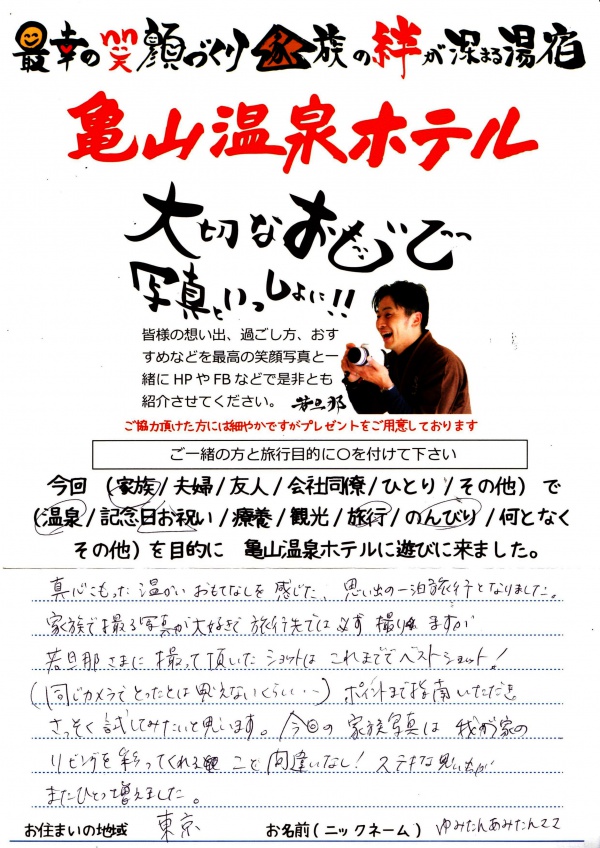 最幸の笑顔づくり 家族の絆が深まる湯宿
亀山温泉ホテル
大切なおもいで
写真といっしょに!!
皆様の想い出、過ごし方、おす
すめなどを最高の笑顔写真と一
緒にHPやFBなどで是非とも
紹介させてください。 若旦那
ご協力頂けた方には細やかですがプレゼントをご用意しております
ご一緒の方と旅行目的に○を付けて下さい
今回 (家族/夫婦/友人/会社同僚/ひとり/その他) で
(温泉/記念日お祝い/療養/観光/旅行/のんびり/何となく
その他) を目的に 亀山温泉ホテルに遊びに来ました。
真心こもった温かいおもてなしを感じた、思い出の一泊旅行となりました。
家族で撮る写真が大好きで旅行先では必ず撮りますが
若旦那さまに撮って頂いたショットはこれまででベストショット!
(同じカメラでとったとは思えないくらい…) ポイントまで指南いただき
さっそく試してみたいと思います。今回の家族写真は我が家の
リビングを彩ってくれること間違いなし!ステキな思い出が
またひとつ増えました。
お住まいの地域 東京 お名前(ニックネーム) ゆみたんあみたんママ